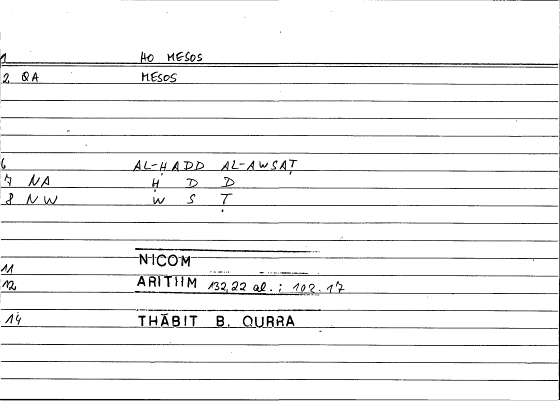 1 HO MESOS
2 QA MESOS
6 AL-ḤADD AL-AWSAṬ
7 NA Ḥ D D
8 NW W S Ṭ
11 NICOM
12 ARITHM 132,22 al.; 102.17
14 THĀBIT B. QURRA